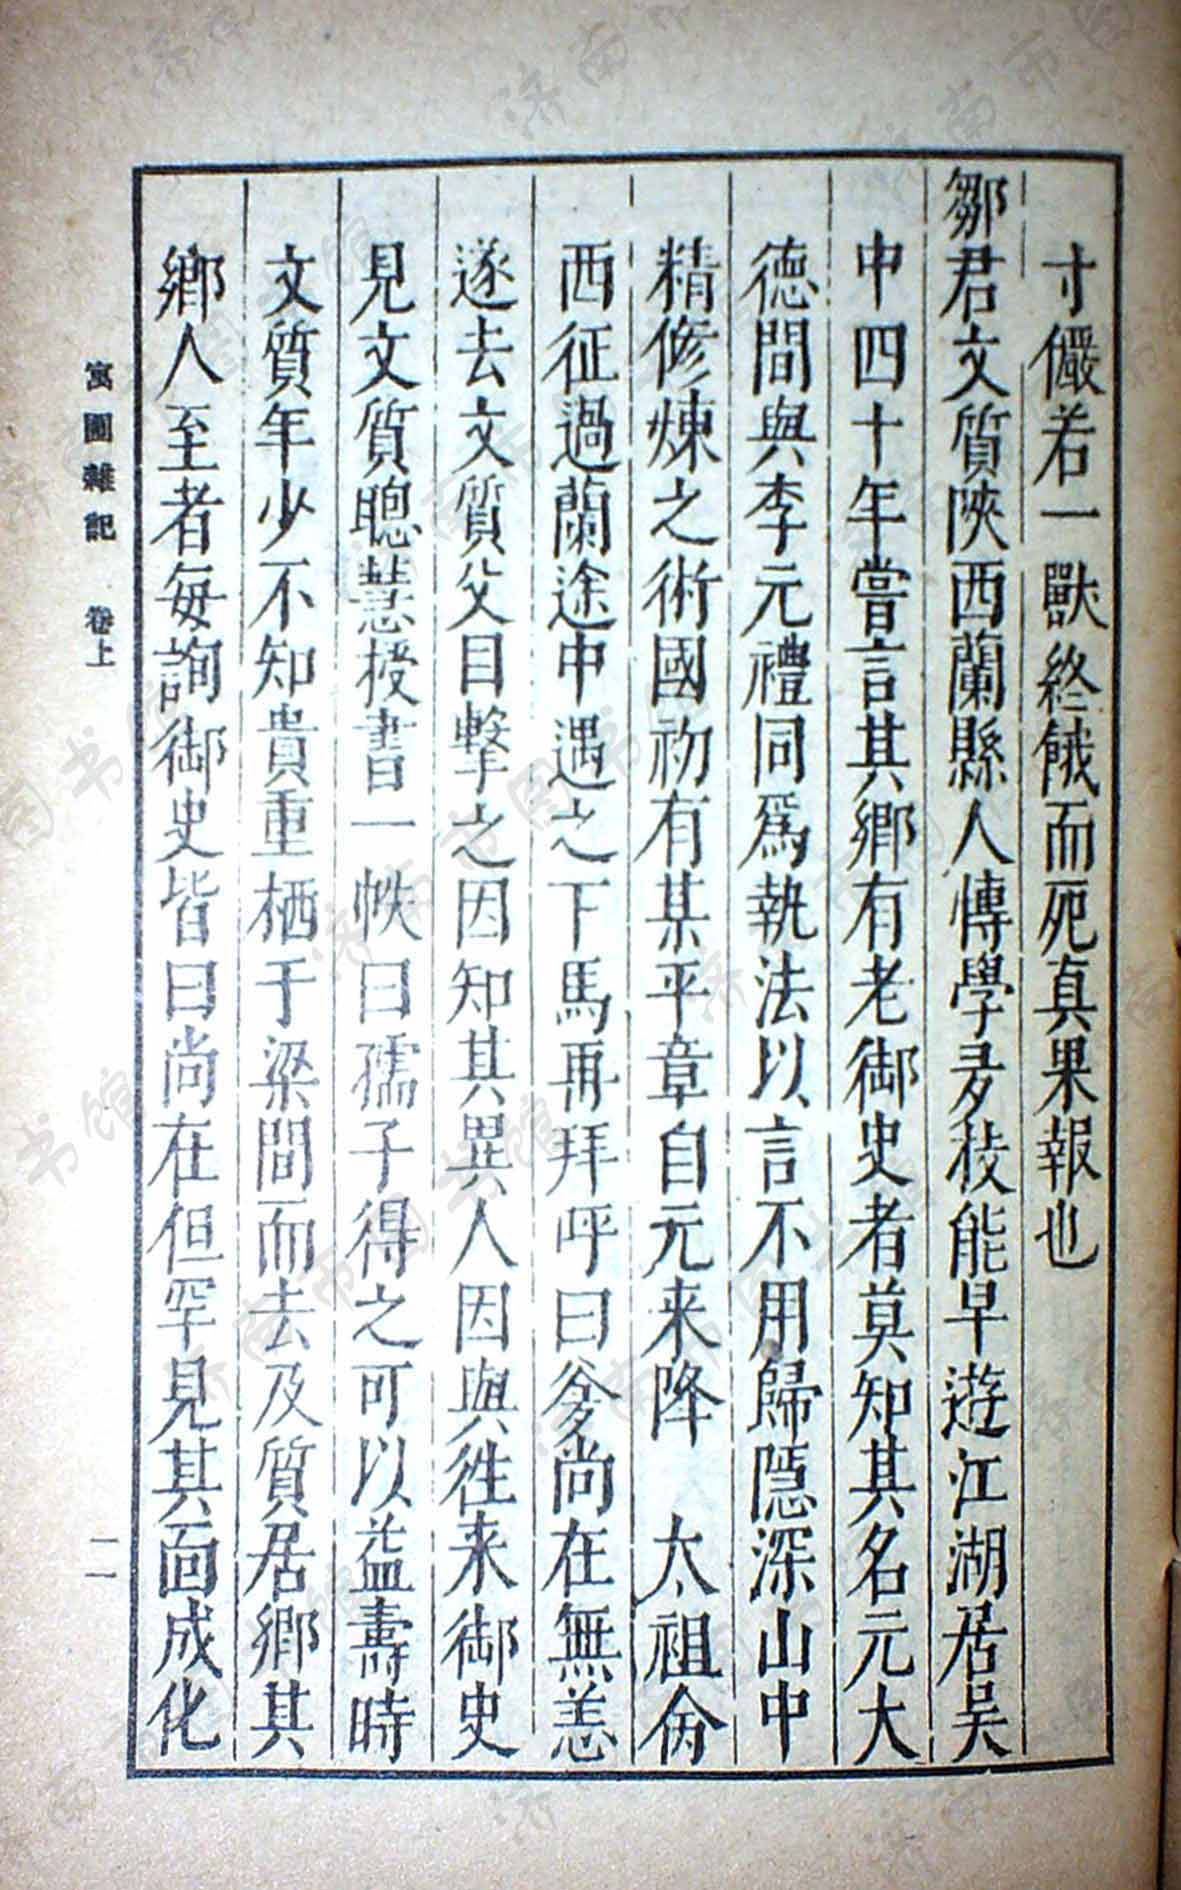 寸儼若一獸終餓而死真果報也
鄒君文質陝西蘭縣人博學多技能早遊江湖居吳
中四十年嘗言其鄉有老御史者莫知其名元大
德間與李元禮同爲執法以言不用歸隱深山中
精修煉之術國初有某平章自元来降　太祖命
西征過蘭途中遇之下馬再拜呼曰爹尚在無恙
遂去文質父目擊之因知其異人因與徃来御史
見文質聰慧授書一帙曰孺子得之可以益壽時
文質年少不知貴重栖于梁間而去及質居鄉其
鄉人至者每詢御史皆曰尚在但罕見其面成化
寓圃雜記　卷上
一一